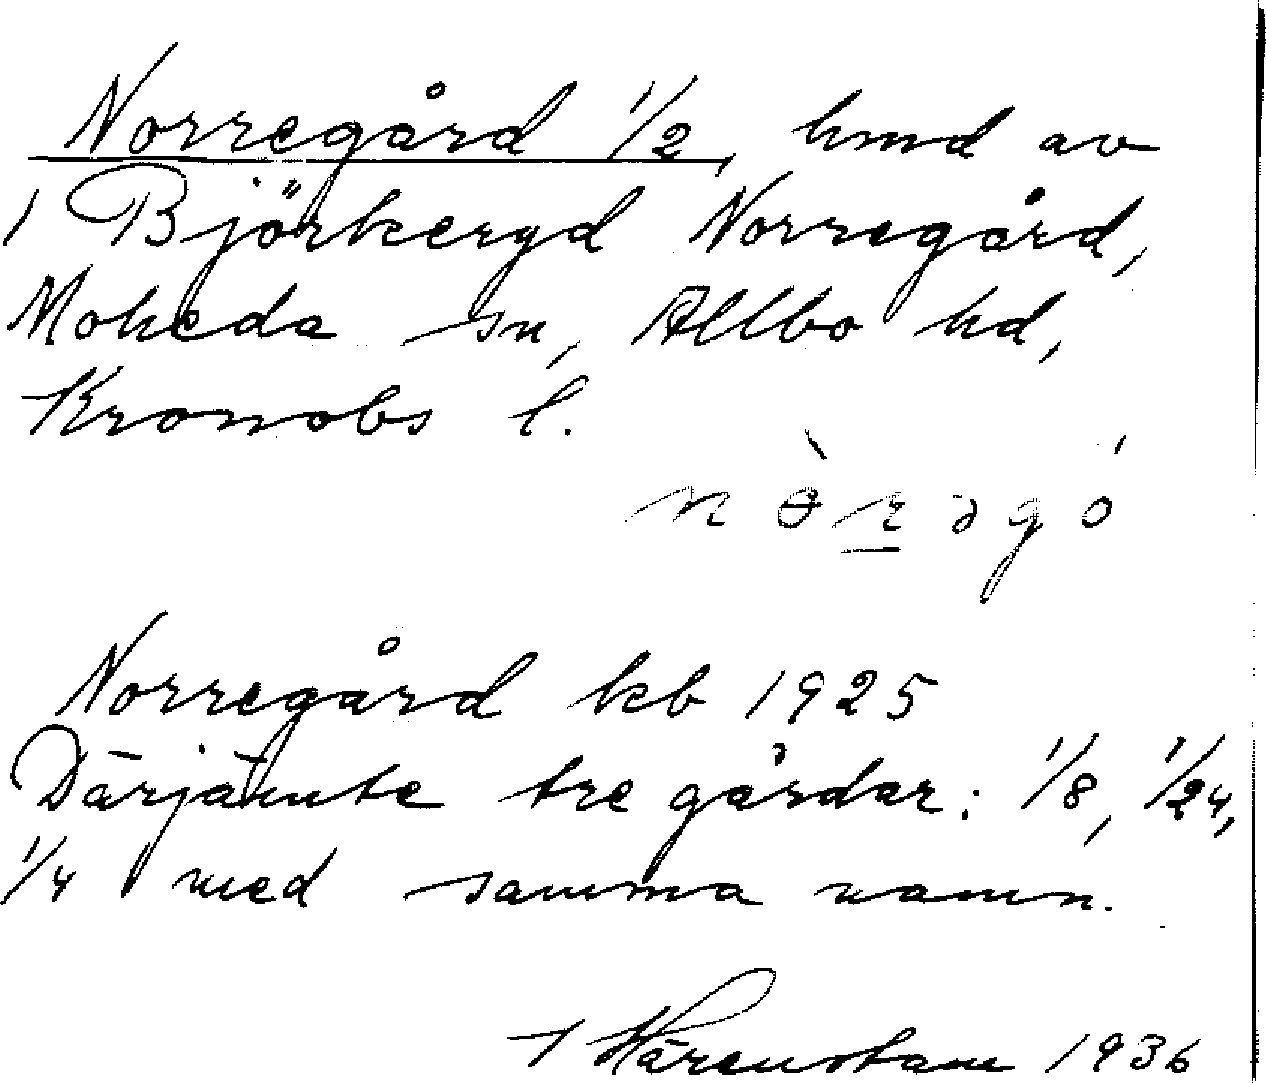 Norregård 1/2, hmd av
1 Björkeryd Norregård,
Moheda sn, Allbo hd,
Kronobs l.
Norregård kb 1925
Därjämte tre gårdar: 1/8, 1/24,
1/4 med samma namn.
I Härenstam 1936